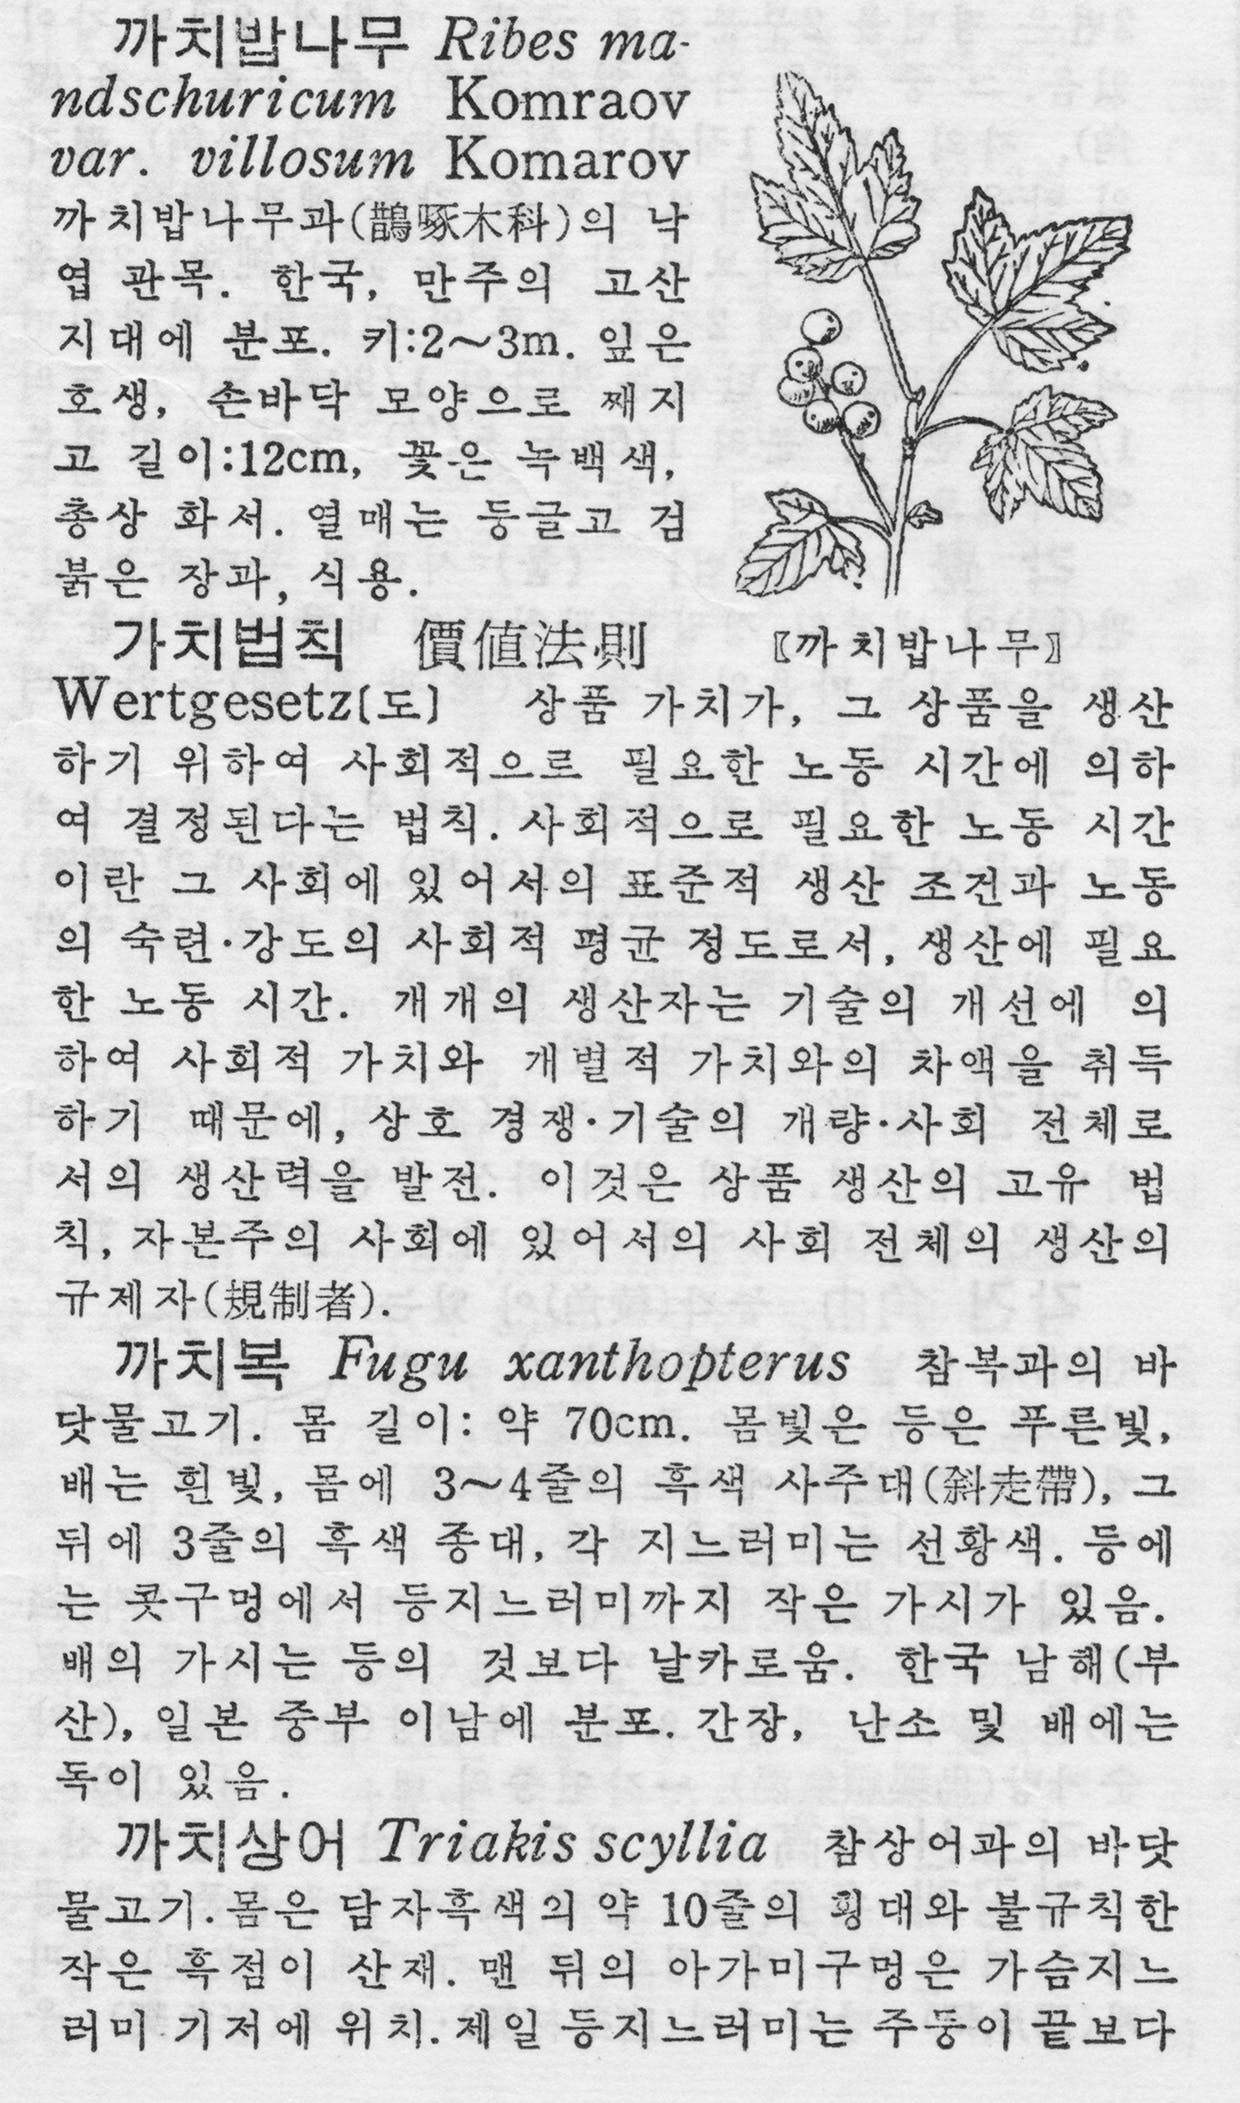 까치밥나무 Ribes ma-
ndschuricum Komraov
var. villosum Komarov
까치밥나무과(鵲啄木科)의 낙
엽 관목. 한국, 만주의 고산
지대에 분포. 키:2～3m. 잎은
호생, 손바닥 모양으로 째지
고 길이:12cm, 꽃은 녹백색,
총상 화서. 열매는 둥글고 검
붉은 장과, 식용.
〖까치밥나무〗
가치법칙 價値法則
Wertgesetz[도] 상품 가치가, 그 상품을 생산
하기 위하여 사회적으로 필요한 노동 시간에 의하
여 결정된다는 법칙. 사회적으로 필요한 노동 시간
이란 그 사회에 있어서의 표준적 생산 조건과 노동
의 숙련·강도의 사회적 평균 정도로서, 생산에 필요
한 노동 시간. 개개의 생산자는 기술의 개선에 의
하여 사회적 가치와 개별적 가치와의 차액을 취득
하기 때문에, 상호 경쟁·기술의 개량·사회 전체로
서의 생산력을 발전. 이것은 상품 생산의 고유 법
칙, 자본주의 사회에 있어서의 사회 전체의 생산의
규제자(規制者).
까치복 Fugu xanthopterus 참복과의 바
닷물고기. 몸 길이: 약 70cm. 몸빛은 등은 푸른빛,
배는 흰빛, 몸에 3～4줄의 흑색 사주대(斜走帶), 그
뒤에 3줄의 흑색 종대, 각 지느러미는 선황색. 등에
는 콧구멍에서 등지느러미까지 작은 가시가 있음.
배의 가시는 등의 것보다 날카로움. 한국 남해(부
산), 일본 중부 이남에 분포. 간장, 난소 및 배에는
독이 있음.
까치상어 Triakis scyllia 참상어과의 바닷
물고기. 몸은 담자흑색의 약 10줄의 횡대와 불규칙한
작은 흑점이 산재. 맨 뒤의 아가미구멍은 가슴지느
러미 기저에 위치. 제일 등지느러미는 주둥이 끝보다